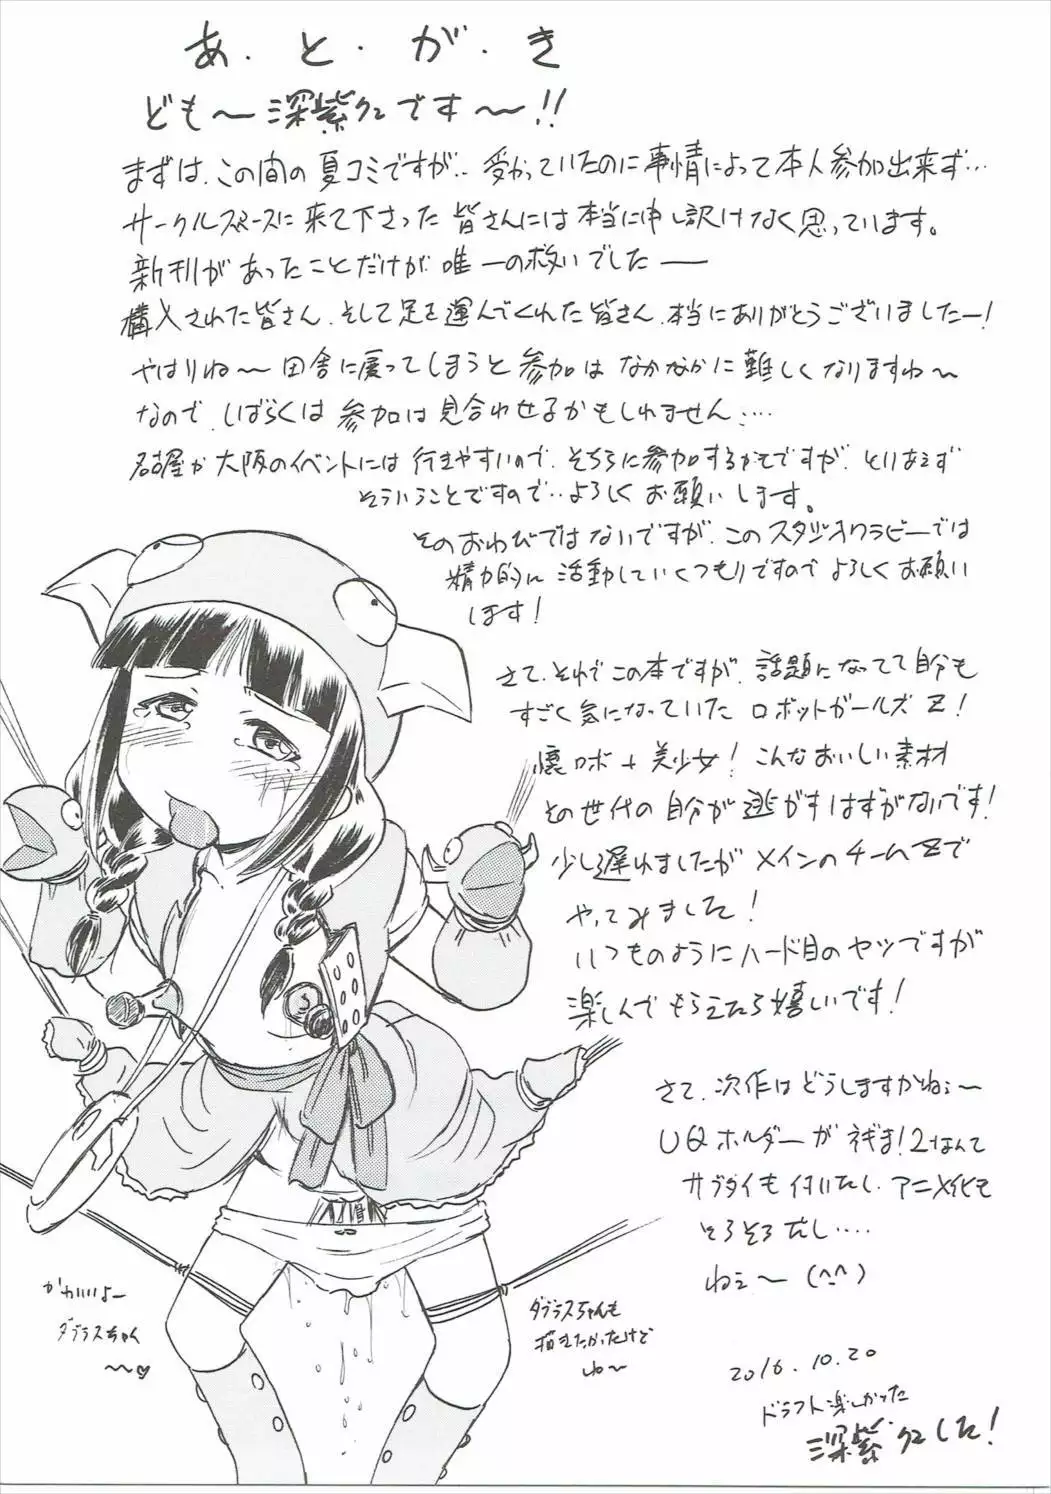 あ・と・が・き
ども〜深紫クニです〜!!
まずは、この間の夏コミですが‥受かっていたのに事情によって本人参加出来ず…
サークルスペースに来て下さった皆さんには本当に申し訳けなく思っています。
新刊があったことだけが唯一の救いでしたー
構入された皆さん、そして足を運んでくれた皆さん、本当にありがとうございましたー!
やはりね〜田舎に戻ってしまうと参加はなかなかに難しくなりますね〜
なので、しばらくは参加は見合わせるかもしれません‥‥
名古屋か大阪のイベントには行きやすいので、そちらに参加するかもですが、とりあえず
そういうことですので‥よろしくお願いします。
そのおわびではないですが、このスタジオワラビーでは
精力的に活動していくつもりですのでよろしくお願い
します!
さて、それでこの本ですが、話題になってて自分も
すごく気になっていたロボットガールズZ!
懐ロボ+美少女!こんなおいしい素材
その世代の自分が逃がすはずがないです!
少し遅れましたがメインのチームZで
やってみました!
いつものようにハード目のヤツですが
楽しんでもらえたら嬉しいです!
さて、次作はどうしますかねぇ〜
UQホルダーがネギま!2なんて
サブタイも付いたし、アニメ化も
そろそろだし‥‥
ねぇ〜(^-^)
かわいいよー
ダブラスちゃん
〜〜♡
ダブラスちゃんも
描きたかったけど
ね〜
2016.10.20
ドラフト楽しかった
深紫クニした!